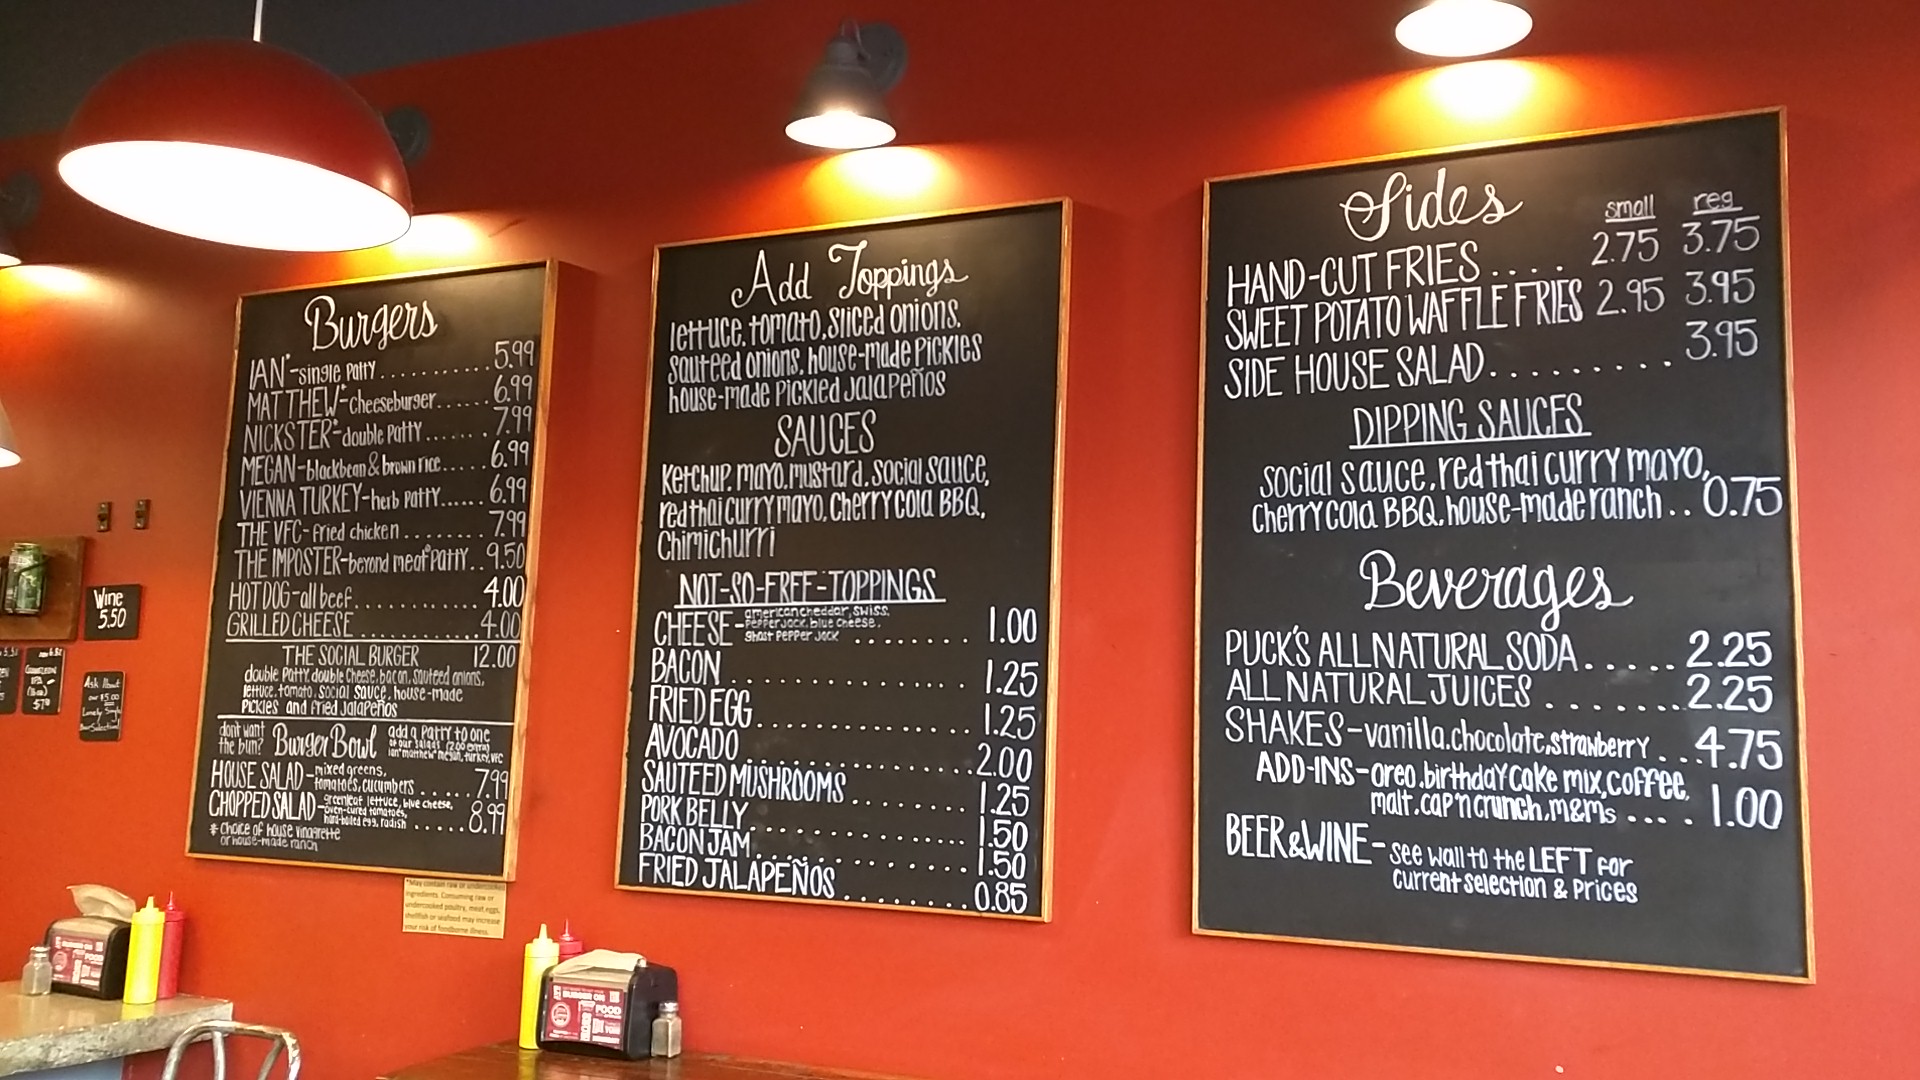 Burgers
IAN*-single patty..........5.99
MATTHEW*-cheeseburger......6.99
NICKSTER*-double patty.......7.99
MEGAN-blackbean & brown rice.....6.99
VIENNA TURKEY-herb patty......6.99
THE VFC-fried chicken........7.99
THE IMPOSTER-beyond meat patty..9.50
HOT DOG-all beef............4.00
GRILLED CHEESE............4.00
THE SOCIAL BURGER 12.00
double patty, double cheese, bacon, sauteed onions,
lettuce, tomato, social sauce, house-made
pickles and fried jalapeños
dont want
the bun? Burger Bowl
add a patty to one
of our salads (2.00 extra)
ian* matthew* megan, turkey, VFC
HOUSE SALAD-mixed greens,
tomatoes, cucumbers......7.99
CHOPPED SALAD-greenleaf lettuce, blue cheese,
oven-cured tomatoes,
hard-boiled egg, radish.....8.99
* choice of house vinaigrette
or house-made ranch
Add Toppings
lettuce, tomato, sliced onions,
sauteed onions, house-made pickles
house-made pickled jalapeños
SAUCES
ketchup, mayo, mustard, social sauce,
red thai curry mayo, cherry cola BBQ,
chimichurri
NOT-SO-FREE-TOPPINGS
CHEESE-american cheddar, swiss,
pepper jack, blue cheese,
ghost pepper jack ........1.00
BACON..............1.25
FRIED EGG............1.25
AVOCADO.............2.00
SAUTEED MUSHROOMS........1.25
PORK BELLY.............1.50
BACON JAM.............1.50
FRIED JALAPEÑOS.........0.85
Sides
small reg
HAND-CUT FRIES.... 2.75 3.75
SWEET POTATO WAFFLE FRIES 2.95 3.95
SIDE HOUSE SALAD......... 3.95
DIPPING SAUCES
social sauce, red thai curry mayo,
cherry cola BBQ, house-made ranch..0.75
Beverages
PUCK'S ALL NATURAL SODA.....2.25
ALL NATURAL JUICES.......2.25
SHAKES-vanilla, chocolate, strawberry...4.75
ADD-INS-oreo, birthday cake mix, coffee,
malt, cap'n crunch, m&ms....1.00
BEER & WINE-see wall to the LEFT for
current selection & prices
Wine
5.50
Ask About
our $5.00
Lonely Single
Beer Selection!
*May contain raw or undercooked
ingredients. Consuming raw or
undercooked poultry, meat eggs,
shellfish or seafood may increase
your risk of foodborne illness.
BURGER ON
FOOD